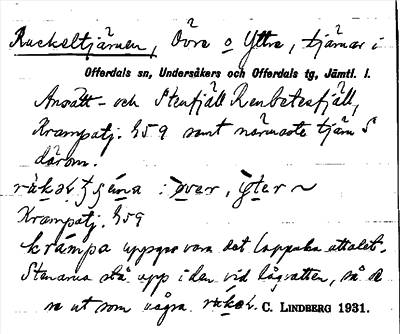 Ruckeltjärnen, Övre o Yttre, tjärnar i
Offerdals sn, Undersåkers och Offerdals tg, Jämtl. l.
Ansätt- och Stenfjäll Renbetesfjäll,
Krampatj. 459 samt närmaste tjärn S
därom.
över, yter ~
Krampatj. 459
krámpa uppges vara det lappska uttalet.
Stenarna stå upp i den vid lågvatten, så de
se ut som några C. LINDBERG 1931.